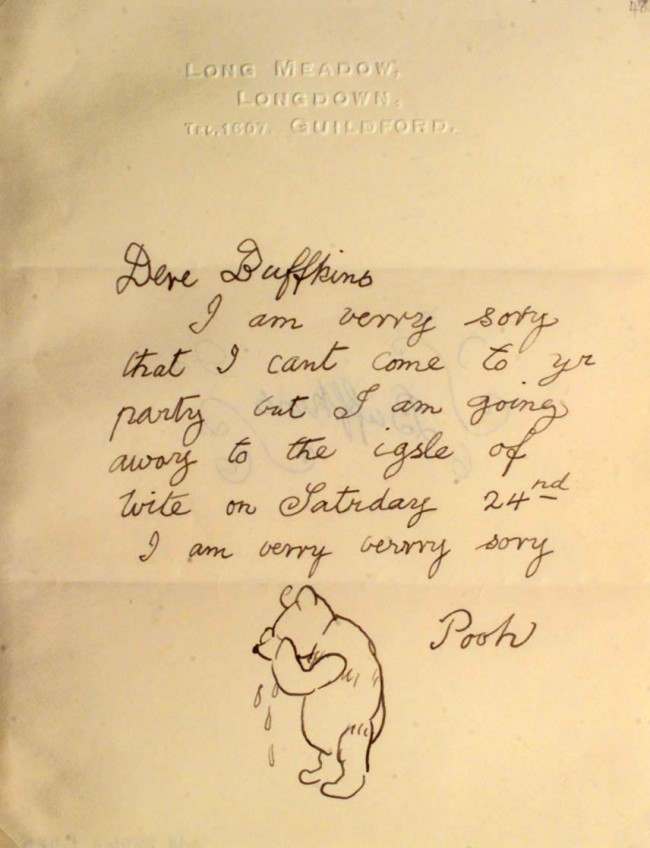 48
LONG MEADOW,
LONGDOWN,
TEL.1607. GUILDFORD.
Dere Buffkins
I am verry sory
that I cant come to yr
party but I am going
away to the igsle of
Wite on Satrday 24nd
I am verry verrry sory
Pooh